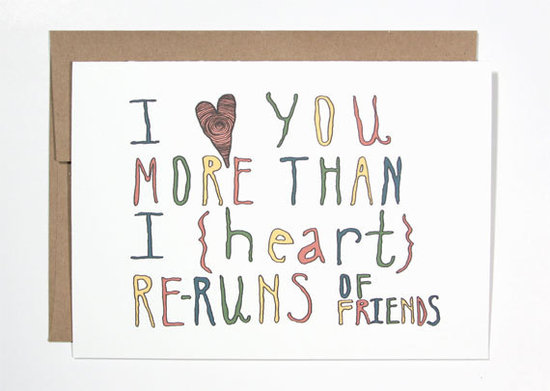 I ♥ YOU
MORE THAN
I {heart}
RE-RUNS OF FRIENDS